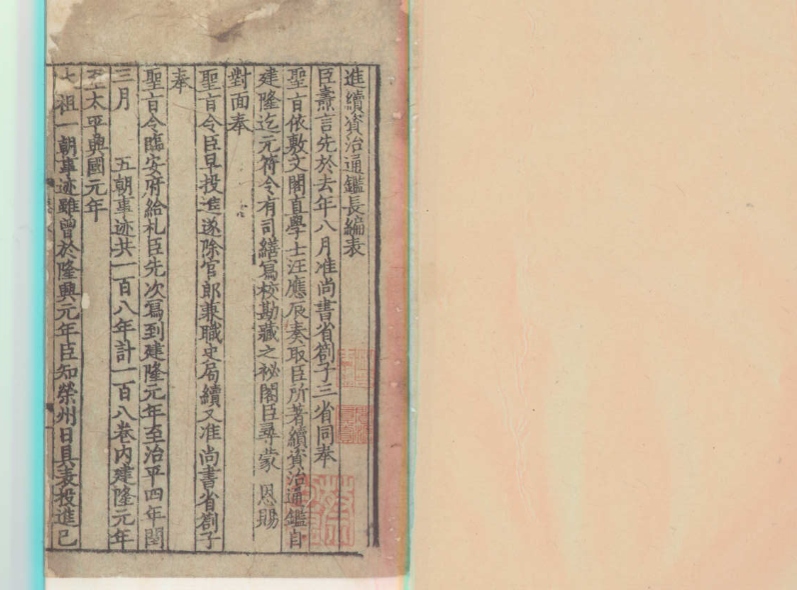 進續資治通鑑長編表
臣燾言先於去年八月准尚書省劄子三省同奉
聖旨依敷文閣直學士汪應辰奏取臣所著續資治通鑑自
建隆迄元符令有司繕寫校勘藏之祕閣臣尋蒙 恩賜
對面奉
聖旨令臣早投進遂除官郎兼職史局續又准尚書省劄子
奉
聖旨令臨安府給札臣先次寫到建隆元年至治平四年閏
三月 五朝事迹共一百八年計一百八卷內建隆元年
至太平興國元年
太祖一朝事迹雖曾於隆興元年臣知榮州日具表投進已